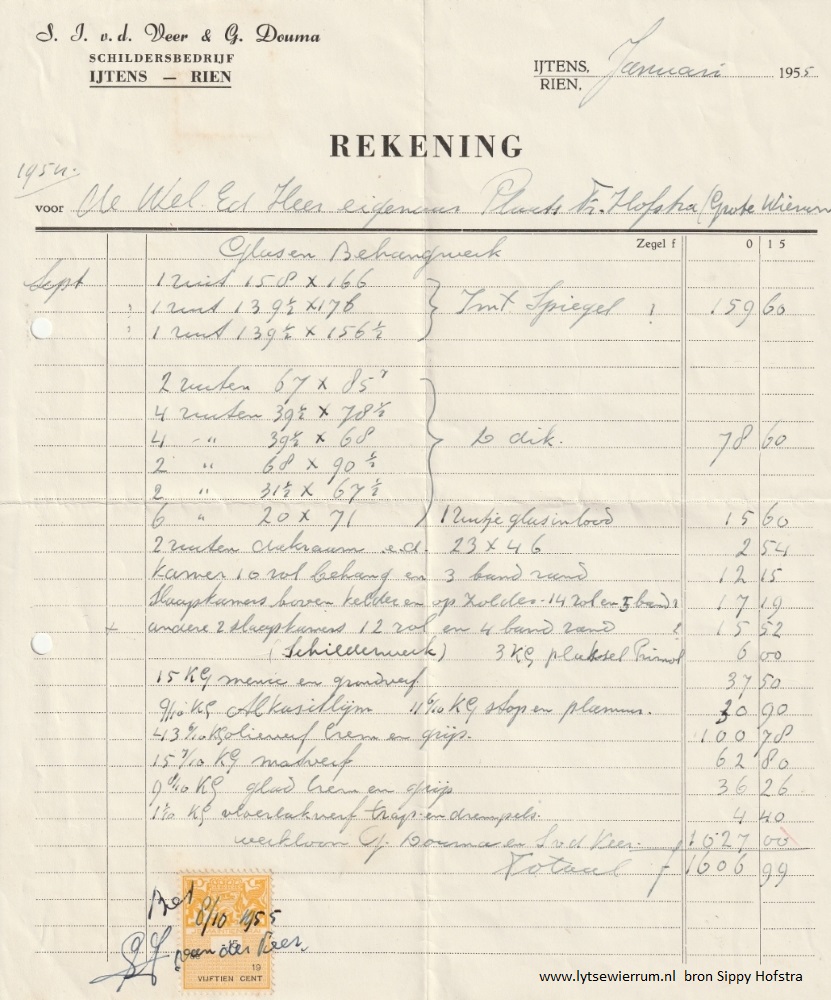 S. J. v.d. Veer & G. Douma
SCHILDERSBEDRIJF
IJTENS — RIEN
IJTENS, Januari 1955
RIEN,
REKENING
1954.
voor De Wel. Ed Heer eigenaar Plaats Fr. Hofstra (Grote Wierum
Glas en Behangwerk Zegel f 0 15
Sept 1 ruit 158 x 166
1 ruit 139½ x 176 Imt Spiegel 159 60
1 ruit 139½ x 156½
2 ruiten 67 x 85
4 ruiten 39½ x 78½
4 -" 39½ x 68 dik. 78 60
2 " 68 x 90½
2 " 31½ x 67½
6 " 20 x 71 1 ruitje glas in lood 15 60
2 ruiten dakraam e.d. 23 x 46 2 54
Kamer 10 rol behang en 3 band rand 12 15
Slaapkamers boven kelder en op zolder - 14 rol en 5 band 17 19
andere 2 slaapkamers 12 rol en 4 band rand 15 52
(Schilderwerk) 3 KG plaksel 6 00
15 KG menie en grondverf 37 50
9/10 KG Alkasitlijm KG stop en plamuur. 30 90
KG olieverf crem en grijs. 100 78
KG matverf 62 80
KG glad crem en grijs 36 26
KG vloerlakverf trap en drempels. 4 40
werkloon G. Douma en S v d Veer. f 1027 00
Totaal f 1606 99
Bet 8/10 1955
van der Veer
19
VIJFTIEN CENT
www.lytsewierrum.nl bron Sippy Hofstra